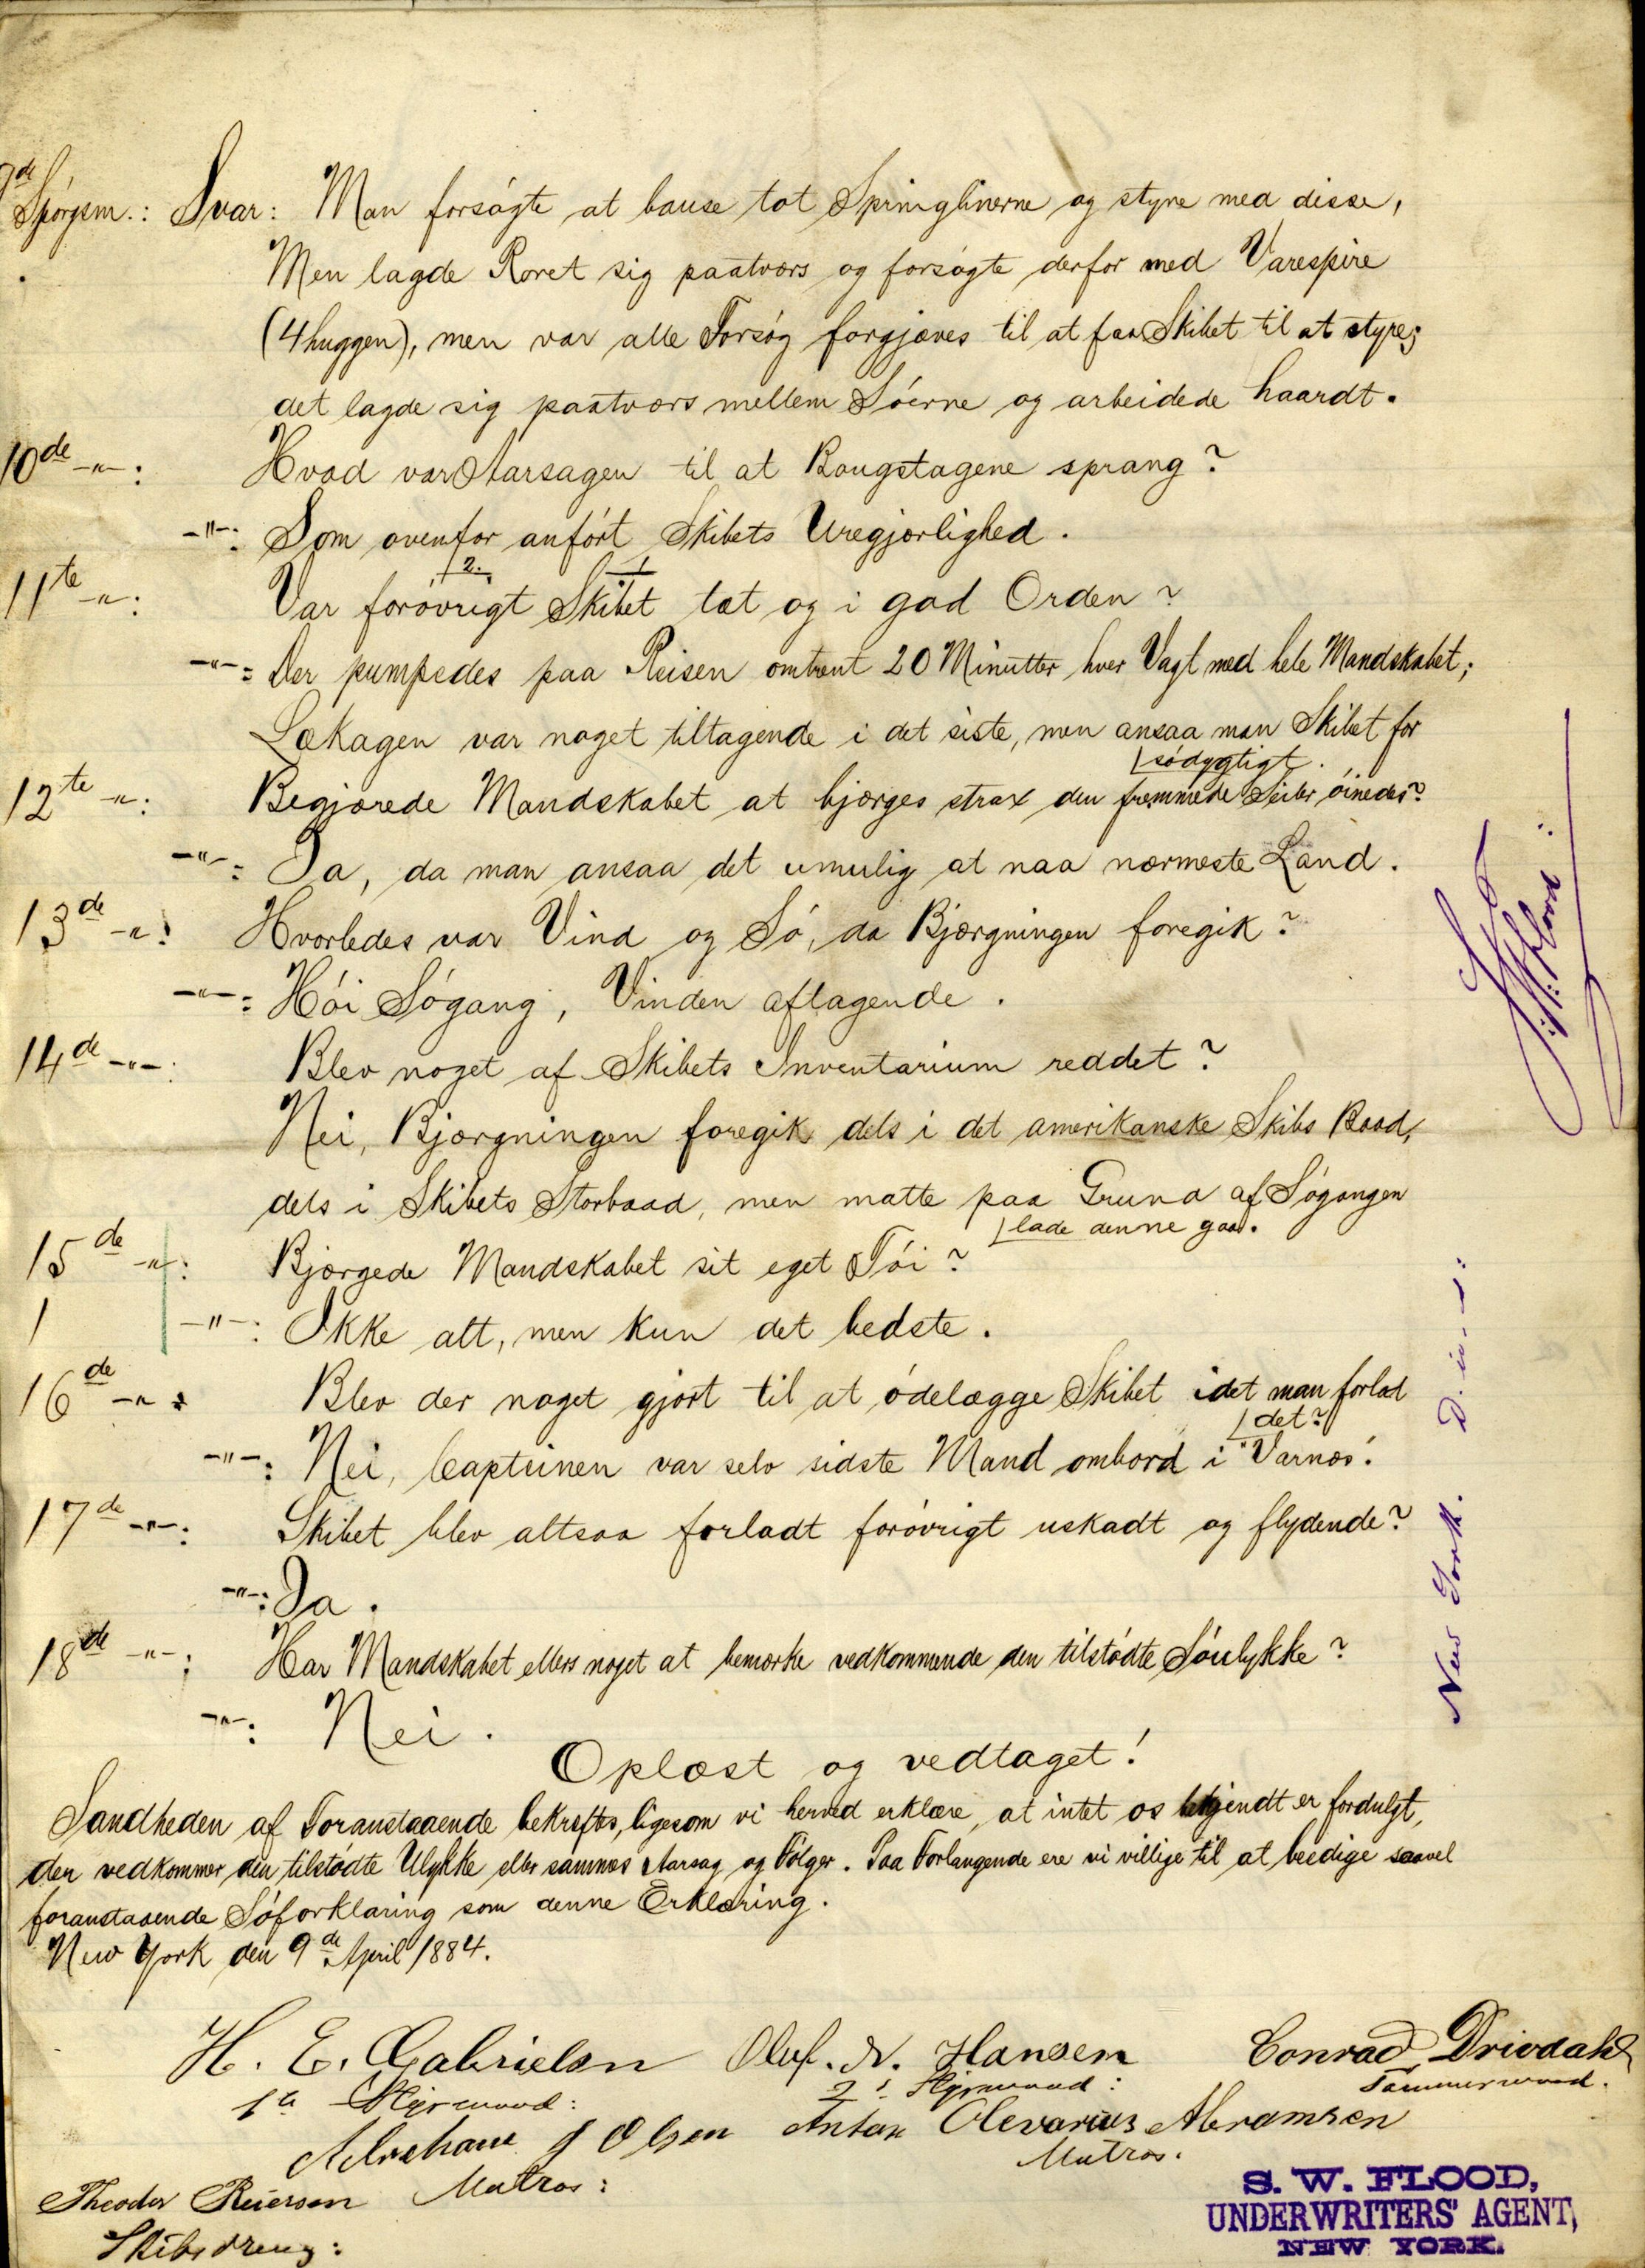 9de Spörgsm.: Svar: Man forsögte at hause tot Springlinerne og styre med disse,
Men lagde Roret sig paatværs og forsögte derfor med Varespire
(4 huggen), men var alle Forsög forgjæves til at faa Skibet til at styre;
det lagde sig paatværs mellem Söerne og arbeidede haardt.
10de -"-: Hvad var Aarsagen til at Bougstagene sprang?
-"-: Som ovenfor anfört Skibets Uregjærlighed.
2. 1
11te -"-: Var forövrigt Skibet tæt og i god Orden?
-"-: Der pumpedes paa Reisen omtrent 20 Minutter hver Vagt med hele Mandskabet;
Lækagen var noget tiltagende i det siste, men ansaa man Skibet for
södygtigt.
12te -"-: Begjærede Mandskabet at bjærges strax den fremmede Seiler öinedes?
-"-: Ja, da man ansaa det umulig at naa nærmeste Land.
13de -"-: Hvorledes var Vind og Sö, da Bjærgningen foregik?
-"-: Höi Sögang, Vinden aftagende.
14de -"-: Blev noget af Skibets Inventarium reddet?
Nei, Bjærgningen foregik dels i det amerikanske Skibs Baad,
dels i Skibets Storbaad, men matte paa Grund af Sögangen
lade denne gaa.
15de -"-: Bjærgede Mandskabet sit eget Töi?
-"-: Ikke alt, men kun det bedste.
16de -"-: Blev der noget gjört til at ödelægge Skibet idet man forlod
det?
-"-: Nei, Capteinen var selv sidste Mand ombord i "Varnæs".
17de -"-: Skibet blev altsaa forladt forövrigt uskadt og flydende?
-"-: Ja.
18de -"-: Har Mandskabet ellers noget at bemærke vedkommende den tilstödte Söulykke?
-"-: Nei.
Oplæst og vedtaget!
Sandheden af Foranstaaende bekræftes, ligesom vi herved erklære, at intet os bekjendt er fordulgt,
der vedkommer den tilstödte Ulykke eller sammes Aarsag og Fölger. Paa Forlangende ere vi villige til at beedige saavel
foranstaaende Söforklaring som denne Erklæring.
New York den 9de April 1884.
H. E. Gabrielsen Oluf. N. Hansen Conrad Drivdahl
1ste Styrmand: 2. Styrmand: Tömmermand.
Abraham J Olsen Anton Olevarius Abramsen
Matros: Matros.
Theodor Reierson
Skibsdreng:
S. W. FLOOD,
UNDERWRITERS' AGENT,
NEW YORK.
New York.